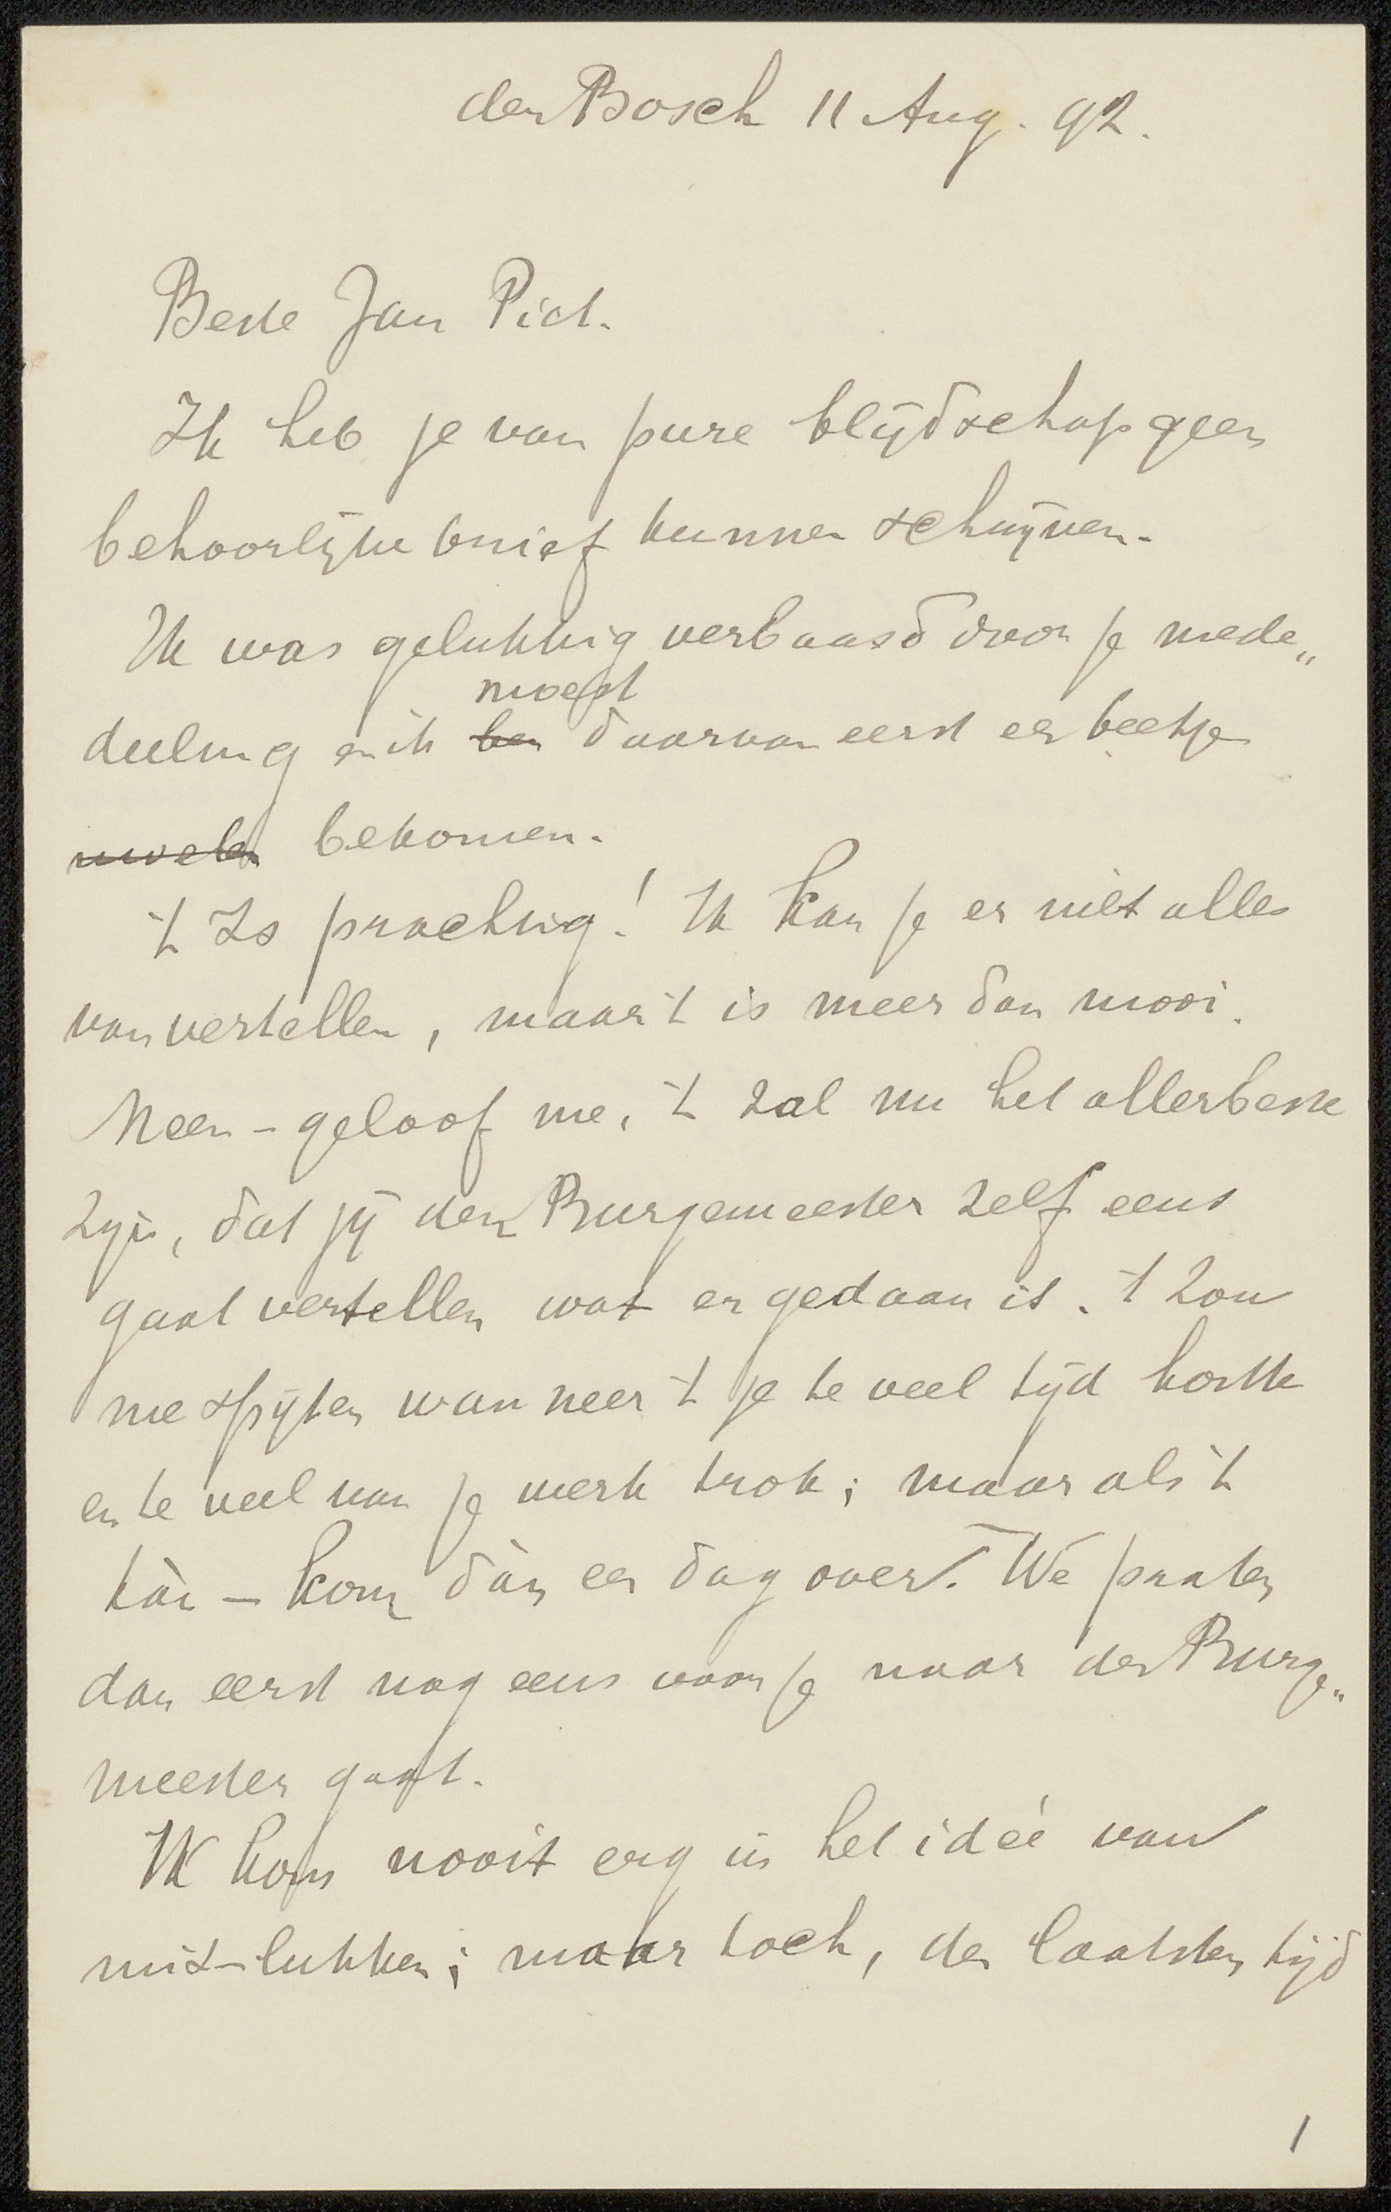 den Bosch 11 Aug. 92.
Beste Jan Piet.
Ik heb je van pure blijdschap geen
behoorlijke brief kunnen schrijven.
Ik was gelukkig verbaasd door je mede„
moest
deeling en ik ben daarvan eerst een beetje
moeten bekomen.
't Is prachtig! Ik kan je er niet alles
van vertellen, maar 't is meer dan mooi.
Neen - geloof me, 't zal nu het allerbeste
zijn, dat jij den Burgemeester zelf eens
gaat vertellen wat er gedaan is. 't Zou
me spijten wanneer 't je te veel tijd kostte
en te veel van je werk trok; maar als 't
kàn - kom dàn een dag over. We praten
dan eerst nog eens voor je naar den Burge„
meester gaat.
Ik kom nooit erg in het ideé van
mis-lukken; maar toch, den laatsten tijd
1